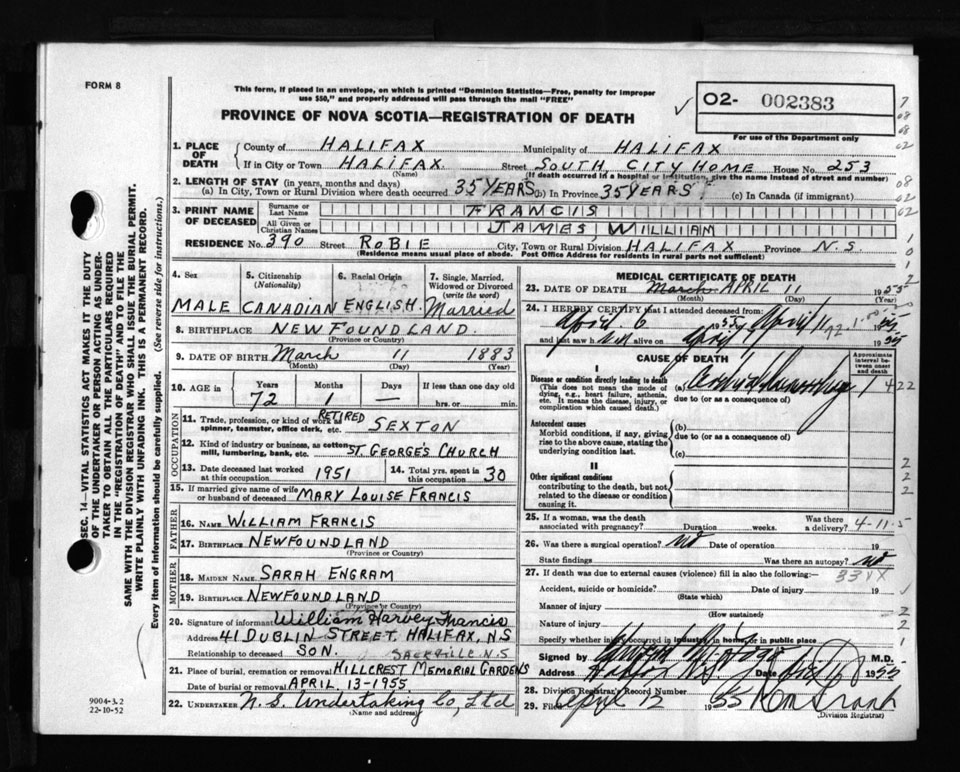 FORM 8
This form, if placed in an envelope, on which is printed "Dominion Statistics—Free, penalty for improper
use $50," and properly addressed will pass through the mail "FREE"
PROVINCE OF NOVA SCOTIA—REGISTRATION OF DEATH
O2- 002383
For use of the Department only
1. PLACE OF DEATH
County of HALIFAX Municipality of HALIFAX
If in City or Town HALIFAX Street SOUTH, CITY HOME House No. 253
(Name) (If death occurred in a hospital or institution, give the name instead of street and number)
2. LENGTH OF STAY (in years, months and days)
(a) In City, Town or Rural Division where death occurred 35 YEARS (b) In Province 35 YEARS (c) In Canada (if immigrant)
3. PRINT NAME OF DECEASED
Surname or Last Name FRANCIS
All Given or Christian Names JAMES, WILLIAM
RESIDENCE No. 390 Street ROBIE City, Town or Rural Division HALIFAX Province N.S.
(Residence means usual place of abode. Post Office Address for residents in rural parts not sufficient)
4. Sex
MALE
5. Citizenship (Nationality)
CANADIAN
6. Racial Origin
ENGLISH.
7. Single, Married, Widowed or Divorced (write the word)
Married
8. BIRTHPLACE NEWFOUNDLAND.
(Province or Country)
9. DATE OF BIRTH March 11 1883
(Month) (Day) (Year)
10. AGE in Years Months Days If less than one day
72 1 — hrs. or min.
OCCUPATION
11. Trade, profession, or kind of work as spinner, teamster, office clerk, etc. RETIRED SEXTON
12. Kind of industry or business, as cotton mill, lumbering, bank, etc. ST. GEORGE'S CHURCH
13. Date deceased last worked at this occupation 1951
14. Total yrs. spent in this occupation 30
15. If married give name of wife or husband of deceased MARY LOUISE FRANCIS
FATHER
16. NAME WILLIAM FRANCIS
17. BIRTHPLACE NEWFOUNDLAND
(Province or Country)
MOTHER
18. MAIDEN NAME SARAH ENGRAM
19. BIRTHPLACE NEWFOUNDLAND
(Province or Country)
20. Signature of informant William Harvey Francis
Address 41 DUBLIN STREET, HALIFAX, N.S
Relationship to deceased SON. SACKVILLE N.S
21. Place of burial, cremation or removal HILLCREST MEMORIAL GARDENS
Date of burial or removal APRIL. 13-1955
22. UNDERTAKER N.S. Undertaking Co, Ltd
(Name and address)
MEDICAL CERTIFICATE OF DEATH
23. DATE OF DEATH March APRIL 11 1955
(Month) (Day) (Year)
24. I HEREBY CERTIFY that I attended deceased from:
April 6 1955 April 11 1955
and last saw him on April 11 1955
CAUSE OF DEATH
Approximate interval between onset and death
I
Disease or condition directly leading to death
(This does not mean the mode of dying, e.g., heart failure, asthenia, etc. It means the disease, injury, or complication which caused death.)
(a)
due to (or as a consequence of)
422
Antecedent causes
Morbid conditions, if any, giving rise to the above cause, stating the underlying condition last.
(b)
due to (or as a consequence of)
(c)
II
Other significant conditions
contributing to the death, but not related to the disease or condition causing it.
25. If a woman, was the death associated with pregnancy? Duration weeks. Was there a delivery? 4-11-5
26. Was there a surgical operation? no Date of operation 19
State findings Was there an autopsy? no
27. If death was due to external causes (violence) fill in also the following:—
Accident, suicide or homicide? Date of injury 19
(State which)
Manner of injury
(How sustained)
Nature of injury
Specify whether injury occurred in industry, in home, or in public place
Signed by M.D.
Address Halifax N.S. Date 1955
28. Division Registrar's Record Number
29. Filed April 12 1955
(Division Registrar)
SEC. 14—VITAL STATISTICS ACT MAKES IT THE DUTY
OF THE UNDERTAKER OR PERSON ACTING AS UNDER-
TAKER TO OBTAIN ALL THE PARTICULARS REQUIRED
IN THE "REGISTRATION OF DEATH" AND TO FILE THE
SAME WITH THE DIVISION REGISTRAR WHO SHALL ISSUE THE BURIAL PERMIT.
WRITE PLAINLY WITH UNFADING INK. THIS IS A PERMANENT RECORD.
Every item of information should be carefully supplied. (See reverse side for instructions.)
9004-3.2
22-10-52